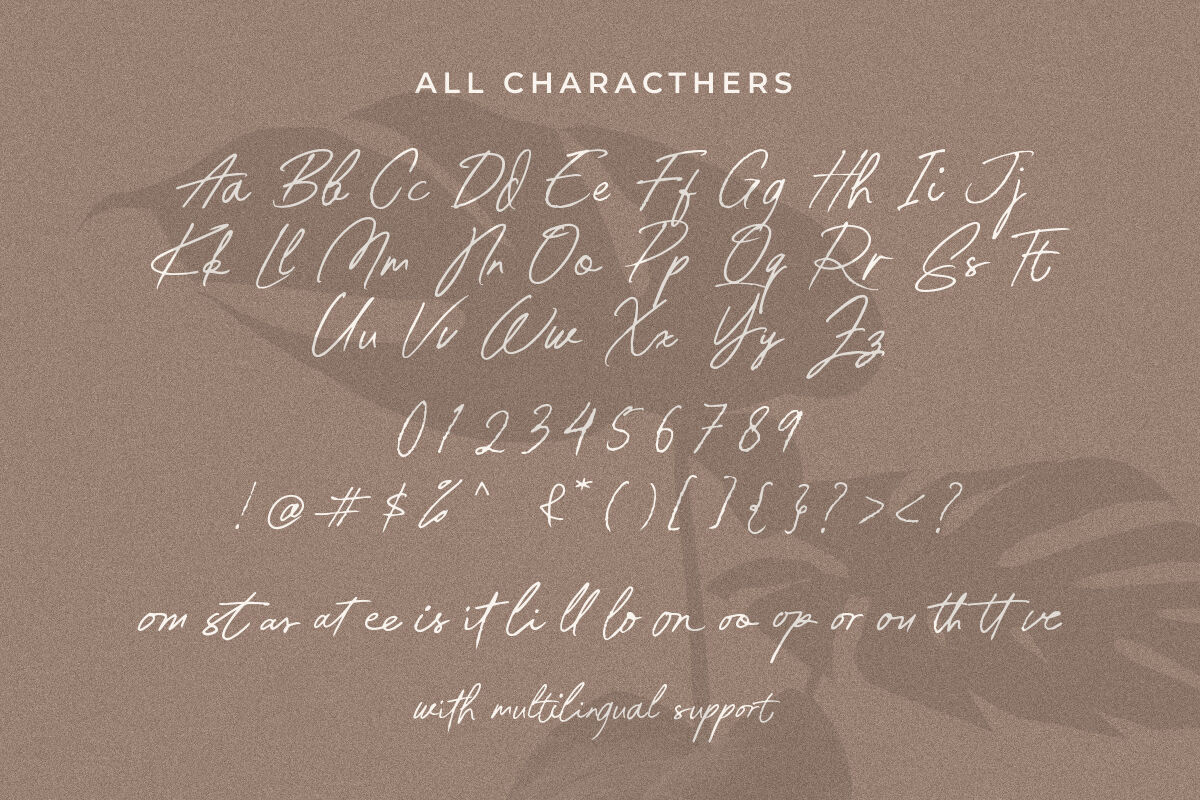 ALL CHARACTHERS
Aa Bb Cc Dd Ee Ff Gg Hh Ii Jj
Kk Ll Mm Nn Oo Pp Qq Rr Ss Tt
Uu Vv Ww Xx Yy Zz
0 1 2 3 4 5 6 7 8 9
! @ # $ % ^ & * ( ) [ ] { } ? > < ?
om st as at ee is it li ll lo on oo op or ou th tt ve
with multilingual support